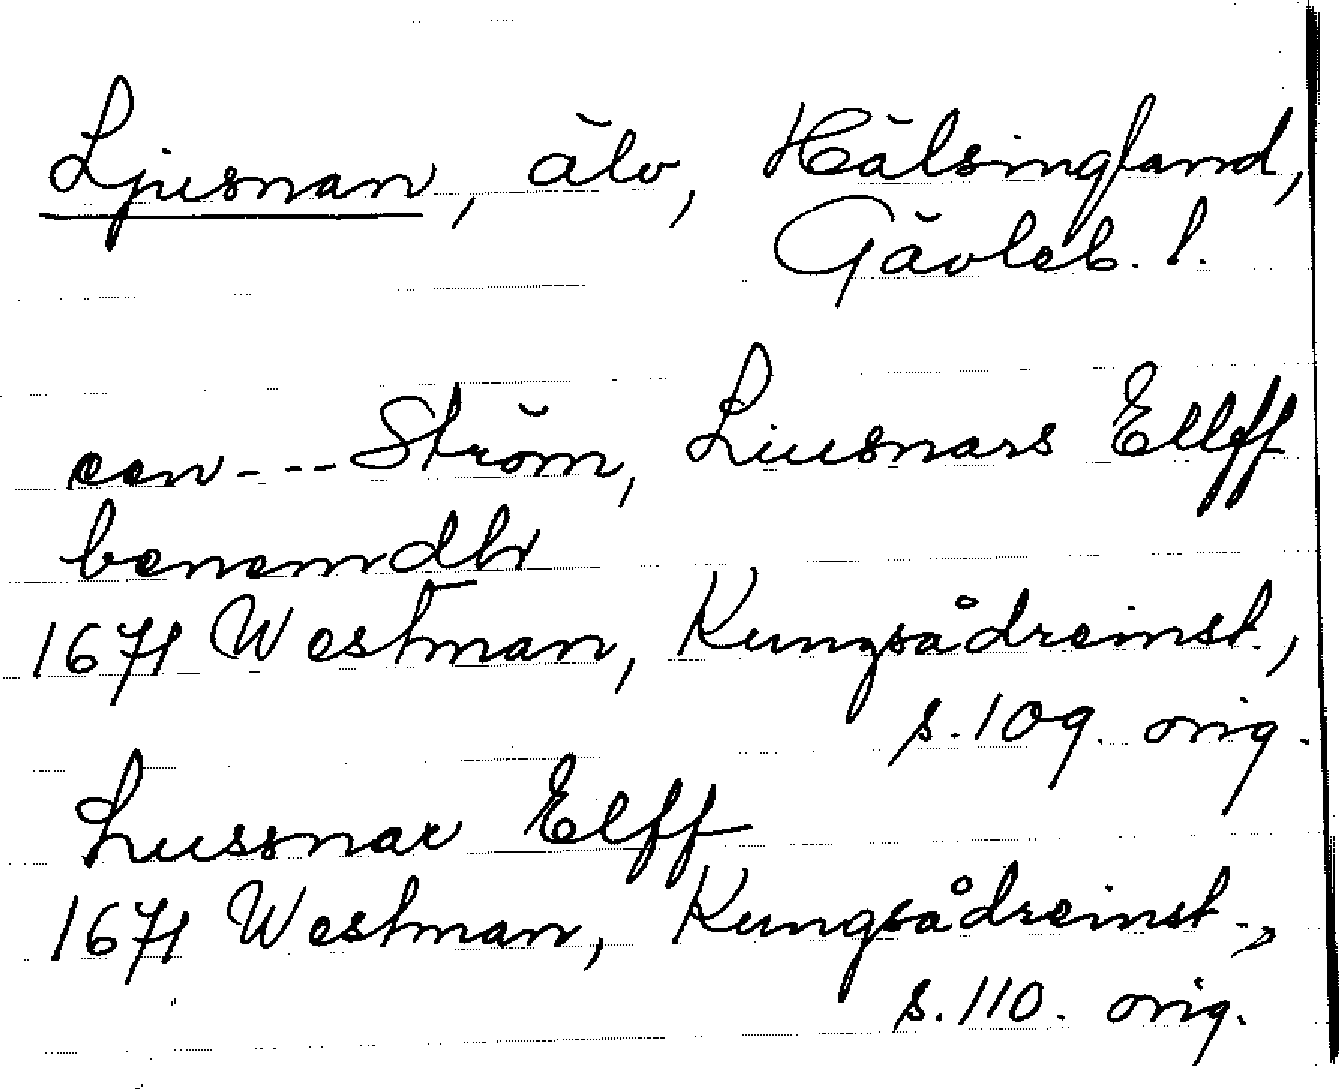 Ljusnan, älv, Hälsingland,
Gävleb. l.
een --- Ström, Liusnars Ellff
benemdh
1671 Westman, Kungsådreinst.,
s. 109. orig.
Lussnar Elff
1671 Westman, Kungsådreinst.,
s. 110. orig.